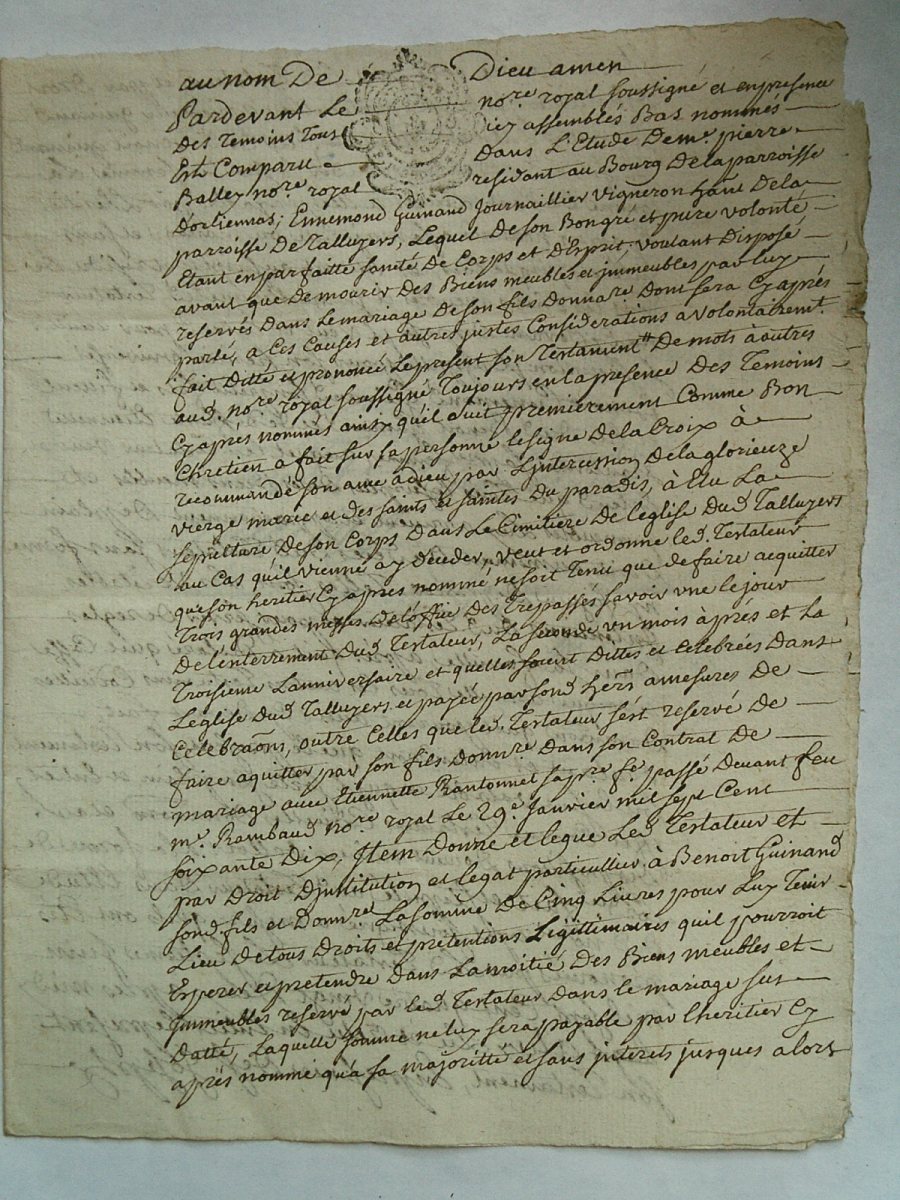 au nom De Dieu amen
Pardevant Le no.re royal soussigné et enpresence
Des Temoins Tous icy assemblés Bas nommés
Est Comparu Dans L'Etude De m.e pierre
Balley no.re royal residant au Bourg Delaparroisse
D'orliennas; Ennemond Guinand Journaillier Vigneron hant Dela
parroisse De Talluyers, Lequel De son Bongré et pure volonté
Etant en parfaitte santé De Corps et d'Esprit, voulant Disposé
avant que De mourir Des Biens meubles et jmmeubles par luy
reservés Dans Le mariage De son fils Donnare Dont sera Cy après
parlé, a Ces Causes et autres justes Considerations a volontairemt.
fait Ditté et prononcé Le present son Testament De mots à autres
aud. no.re royal soussigné Toujours en la presence Des Temoins
Cy après nommés ainsy quil suit premierement Comme Bon
Chretien a fait sur sa personne le signe De la Croix à
recommandé son ame adieu par L'intercession De la glorieuze
vierge marie et des saints et saintes Du paradis, à Elu La
sepulture De son Corps Dans Le Cimitiere De l'eglise Dud. Talluyers
au Cas qu'il vienne a y Deceder, veut et ordonne led. Testateur
que son heritier Cy après nommé ne soit Tenu que de faire acquitter
Trois grandes messes De l'office Des Trepassés savoir une le jour
De l'enterrement Dud. Testateur, La seconde un mois après et La
Troisieme L'anniversaire et quelles soient Dittes et Celebrées Dans
L'eglise Dud. Talluyers et payée par sond. hers. amesures De
Celebraõns, outre Celles que led. Testateur s'est reservé De
faire aquitter par son fils Donnre. Dans son Contrat De
mariage avec Etiennette Rantonnet sa pre. fe. passé Devant feu
m.e Rambaud no.re royal Le 29.e Janvier mil sept Cent
soixante Dix, Item Donne et legue Led. Testateur et
par Droit D'institution et legat particullier à Benoit Guinand
sond. fils et Donnre. La somme De Cinq Livres pour Luy Tenir
Lieu De tous Droits et pretentions Legittimaires quil pourroit
Esperer et pretendre Dans La moitié Des Biens meubles et
jmmeubles reservé par led. Testateur Dans le mariage sus
Datté, Laquelle somme ne luy sera payable par l'heritier Cy
après nommé qu'à sa majoritté et sans interets jusques alors